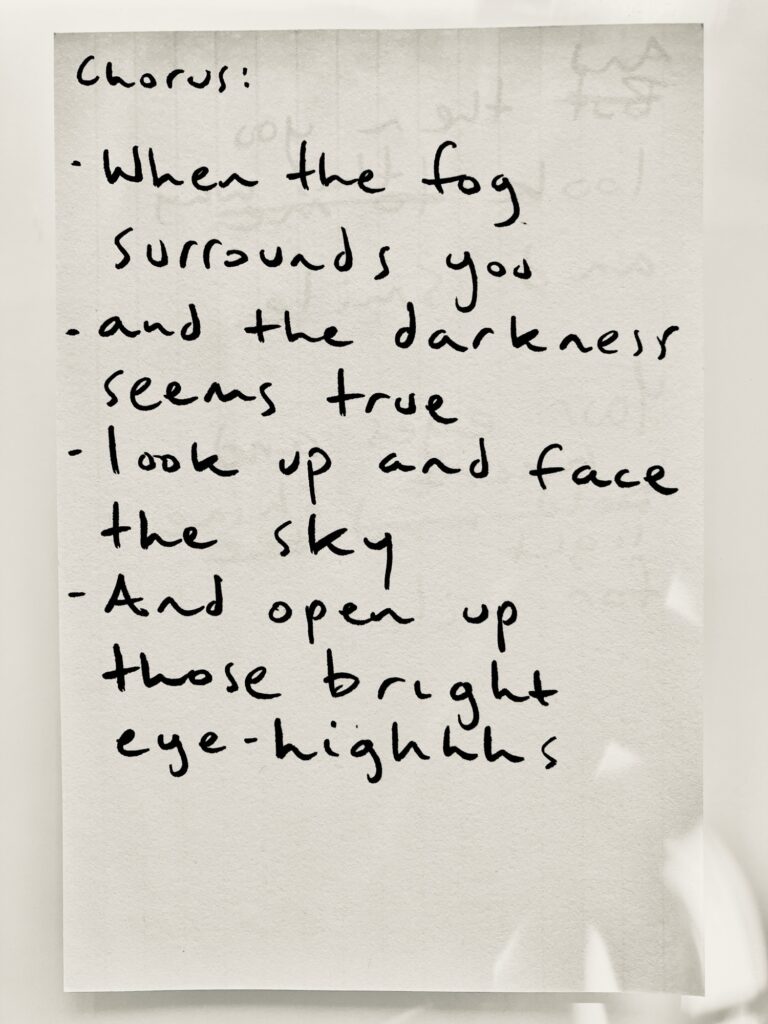 Chorus:
- When the fog
surrounds you
- and the darkness
seems true
- look up and face
the sky
- And open up
those bright
eye-highhhs